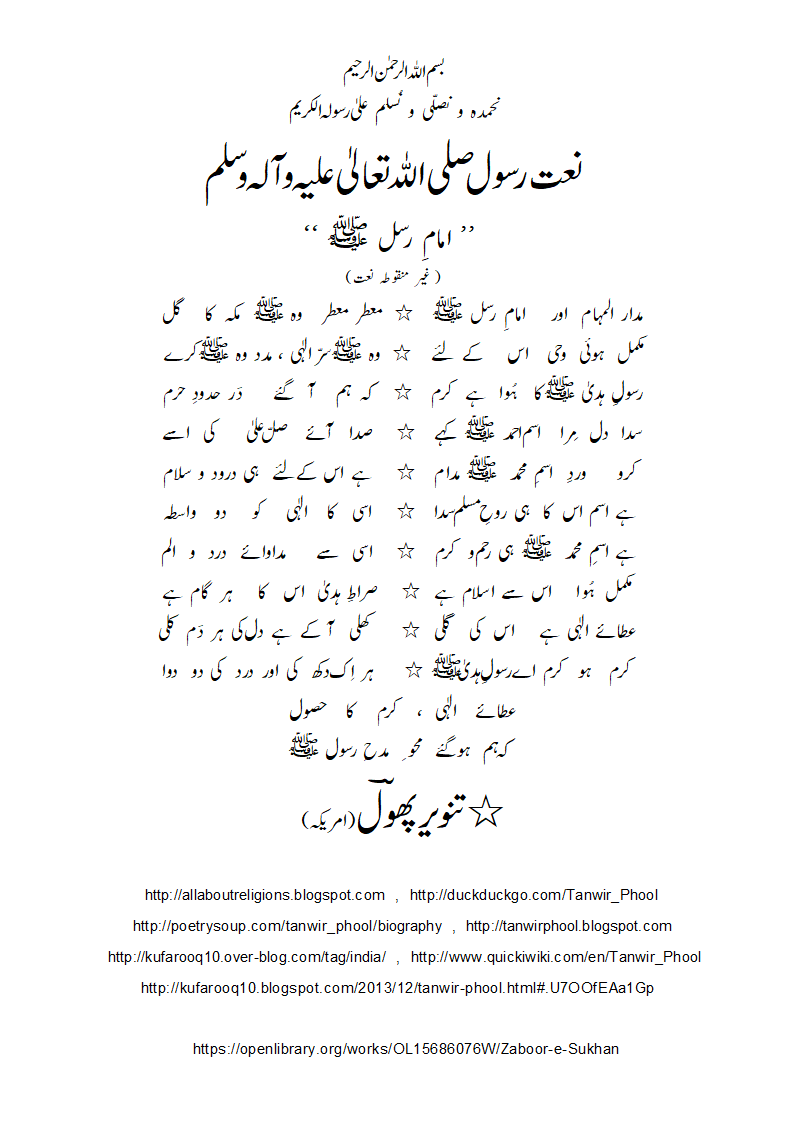 بسم اللہ الرحمٰن الرحیم
نحمدہ و نصلّی و نُسلم علیٰ رسولہ الکریم
نعت رسول صلی اللہ تعالیٰ علیہ و آلہ وسلم
’’ امامِ رسل ﷺ ‘‘
(غیر منقوطہ نعت)
مدار المہام اور امامِ رسل ﷺ ☆ معطر معطر وہ ﷺ مکہ کا گل
مکمل ہوئی وحی اس کے لئے ☆ وہ ﷺ سرّ الٰہی ، مدد وہ ﷺ کرے
رسولِ ہدیٰ ﷺ کا ہُوا ہے کرم ☆ کہ ہم آ گئے دَر حدودِ حرم
سدا دل مِرا اسمِ احمد ﷺ کہے ☆ صدا آئے صلِّ علیٰ کی اسے
کرو وردِ اسمِ محمد ﷺ مدام ☆ ہے اس کے لئے ہی درود و سلام
ہے اسم اس کا ہی روحِ مسلم سدا ☆ اسی کا الٰہی کو دو واسطہ
ہے اسمِ محمد ﷺ ہی رحم و کرم ☆ اسی سے مداوائے درد و الم
مکمل ہُوا اس سے اسلام ہے ☆ صراطِ ہدیٰ اس کا ہر گام ہے
عطائے الٰہی ہے اس کی گلی ☆ کھلی آ کے ہے دل کی ہر دَم کلی
کرم ہو کرم اے رسولِ ہدیٰ ﷺ ☆ ہر اِک دکھ کی اور درد کی دو دوا
عطائے الٰہی ، کرم کا حصول
کہ ہم ہو گئے محوِ مدحِ رسول ﷺ
☆ تنویر پھولؔ (امریکہ)
http://allaboutreligions.blogspot.com , http://duckduckgo.com/Tanwir_Phool
http://poetrysoup.com/tanwir_phool/biography , http://tanwirphool.blogspot.com
http://kufarooq10.over-blog.com/tag/india/ , http://www.quickiwiki.com/en/Tanwir_Phool
http://kufarooq10.blogspot.com/2013/12/tanwir-phool.html#.U7OOfEAa1Gp
https://openlibrary.org/works/OL15686076W/Zaboor-e-Sukhan